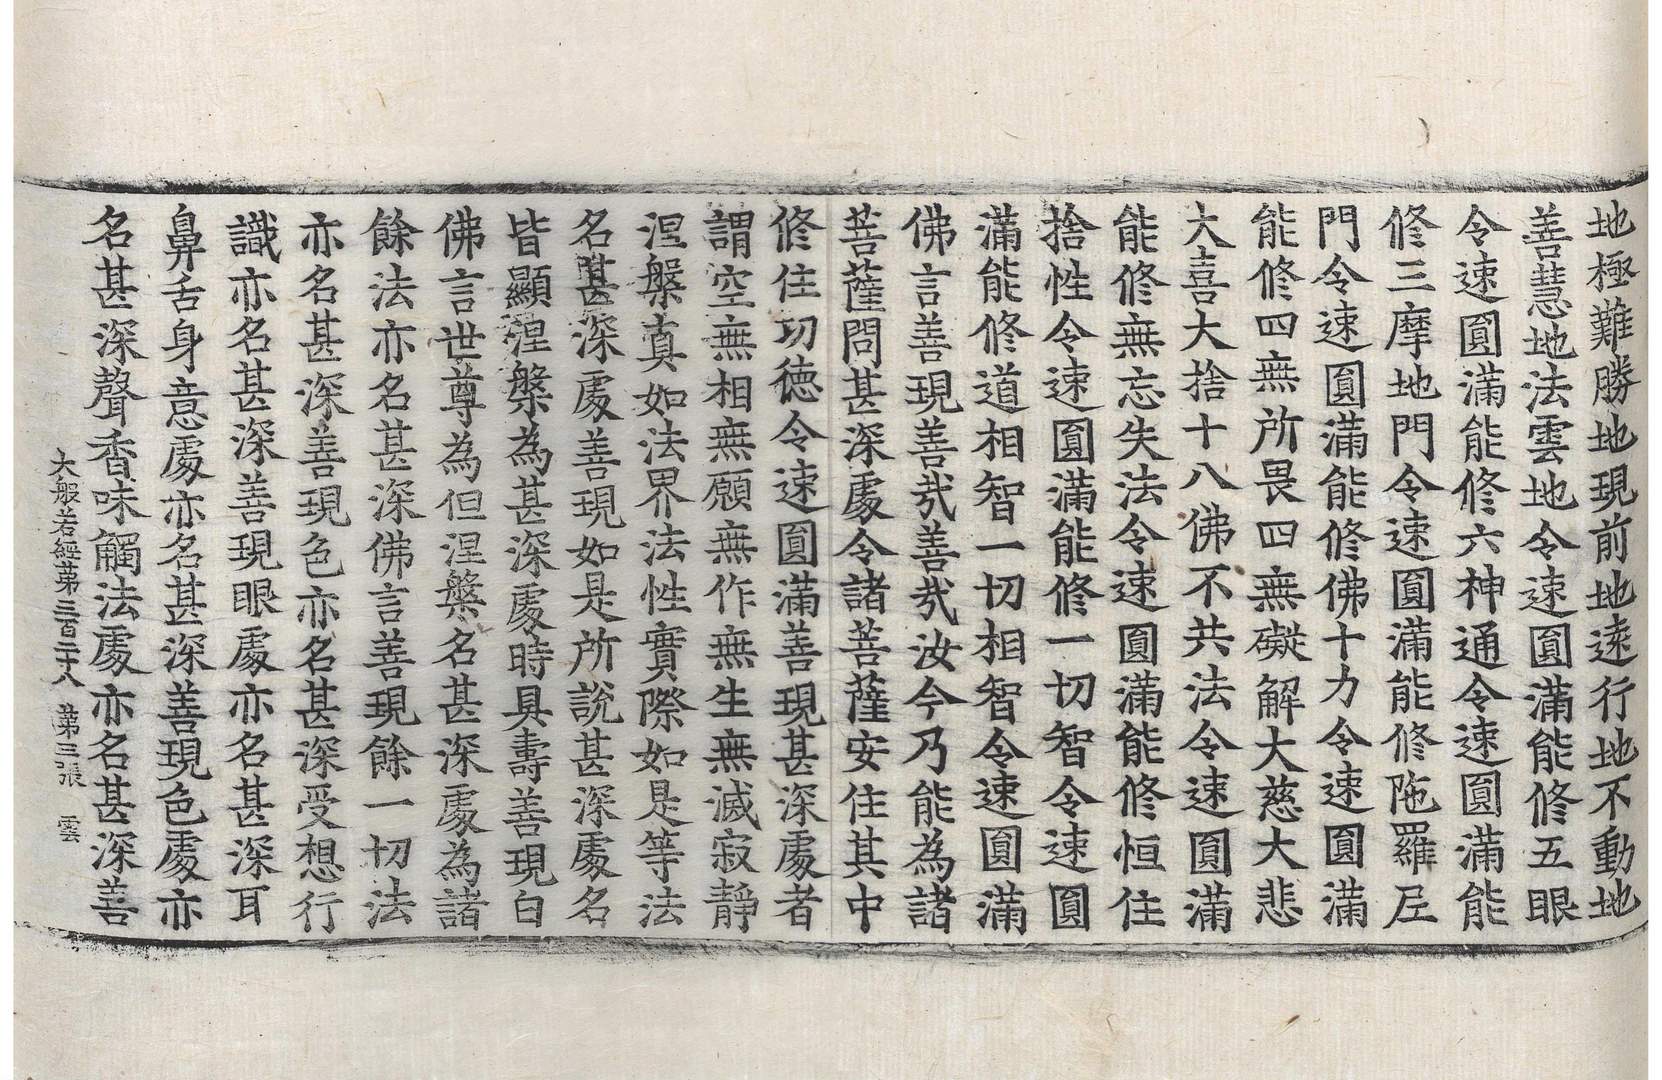 地極難勝地現前地遠行地不動地
善慧地法雲地令速圓滿能修五眼
令速圓滿能修六神通令速圓滿能
修三摩地門令速圓滿能修陁羅尼
門令速圓滿能修佛十力令速圓滿
能修四無所畏四無礙解大慈大悲
大喜大捨十八佛不共法令速圓滿
能修無忘失法令速圓滿能修恒住
捨性令速圓滿能修一切智令速圓
滿能修道相智一切相智令速圓滿
佛言善現善㢤善㢤汝今乃能為諸
菩薩問甚深處令諸菩薩安住其中
修住功徳令速圓滿善現甚深處者
謂空無相無願無作無生無滅寂靜
涅槃真如法界法性實際如是等法
名甚深處善現如是所說甚深處名
皆顯涅槃為甚深處時具壽善現白
佛言世尊為但涅槃名甚深處為諸
餘法亦名甚深佛言善現餘一切法
亦名甚深善現色亦名甚深受想行
識亦名甚深善現眼處亦名甚深耳
鼻舌身意處亦名甚深善現色處亦
名甚深聲香味觸法處亦名甚深善
大般若經第三百二十八 第三張 雲